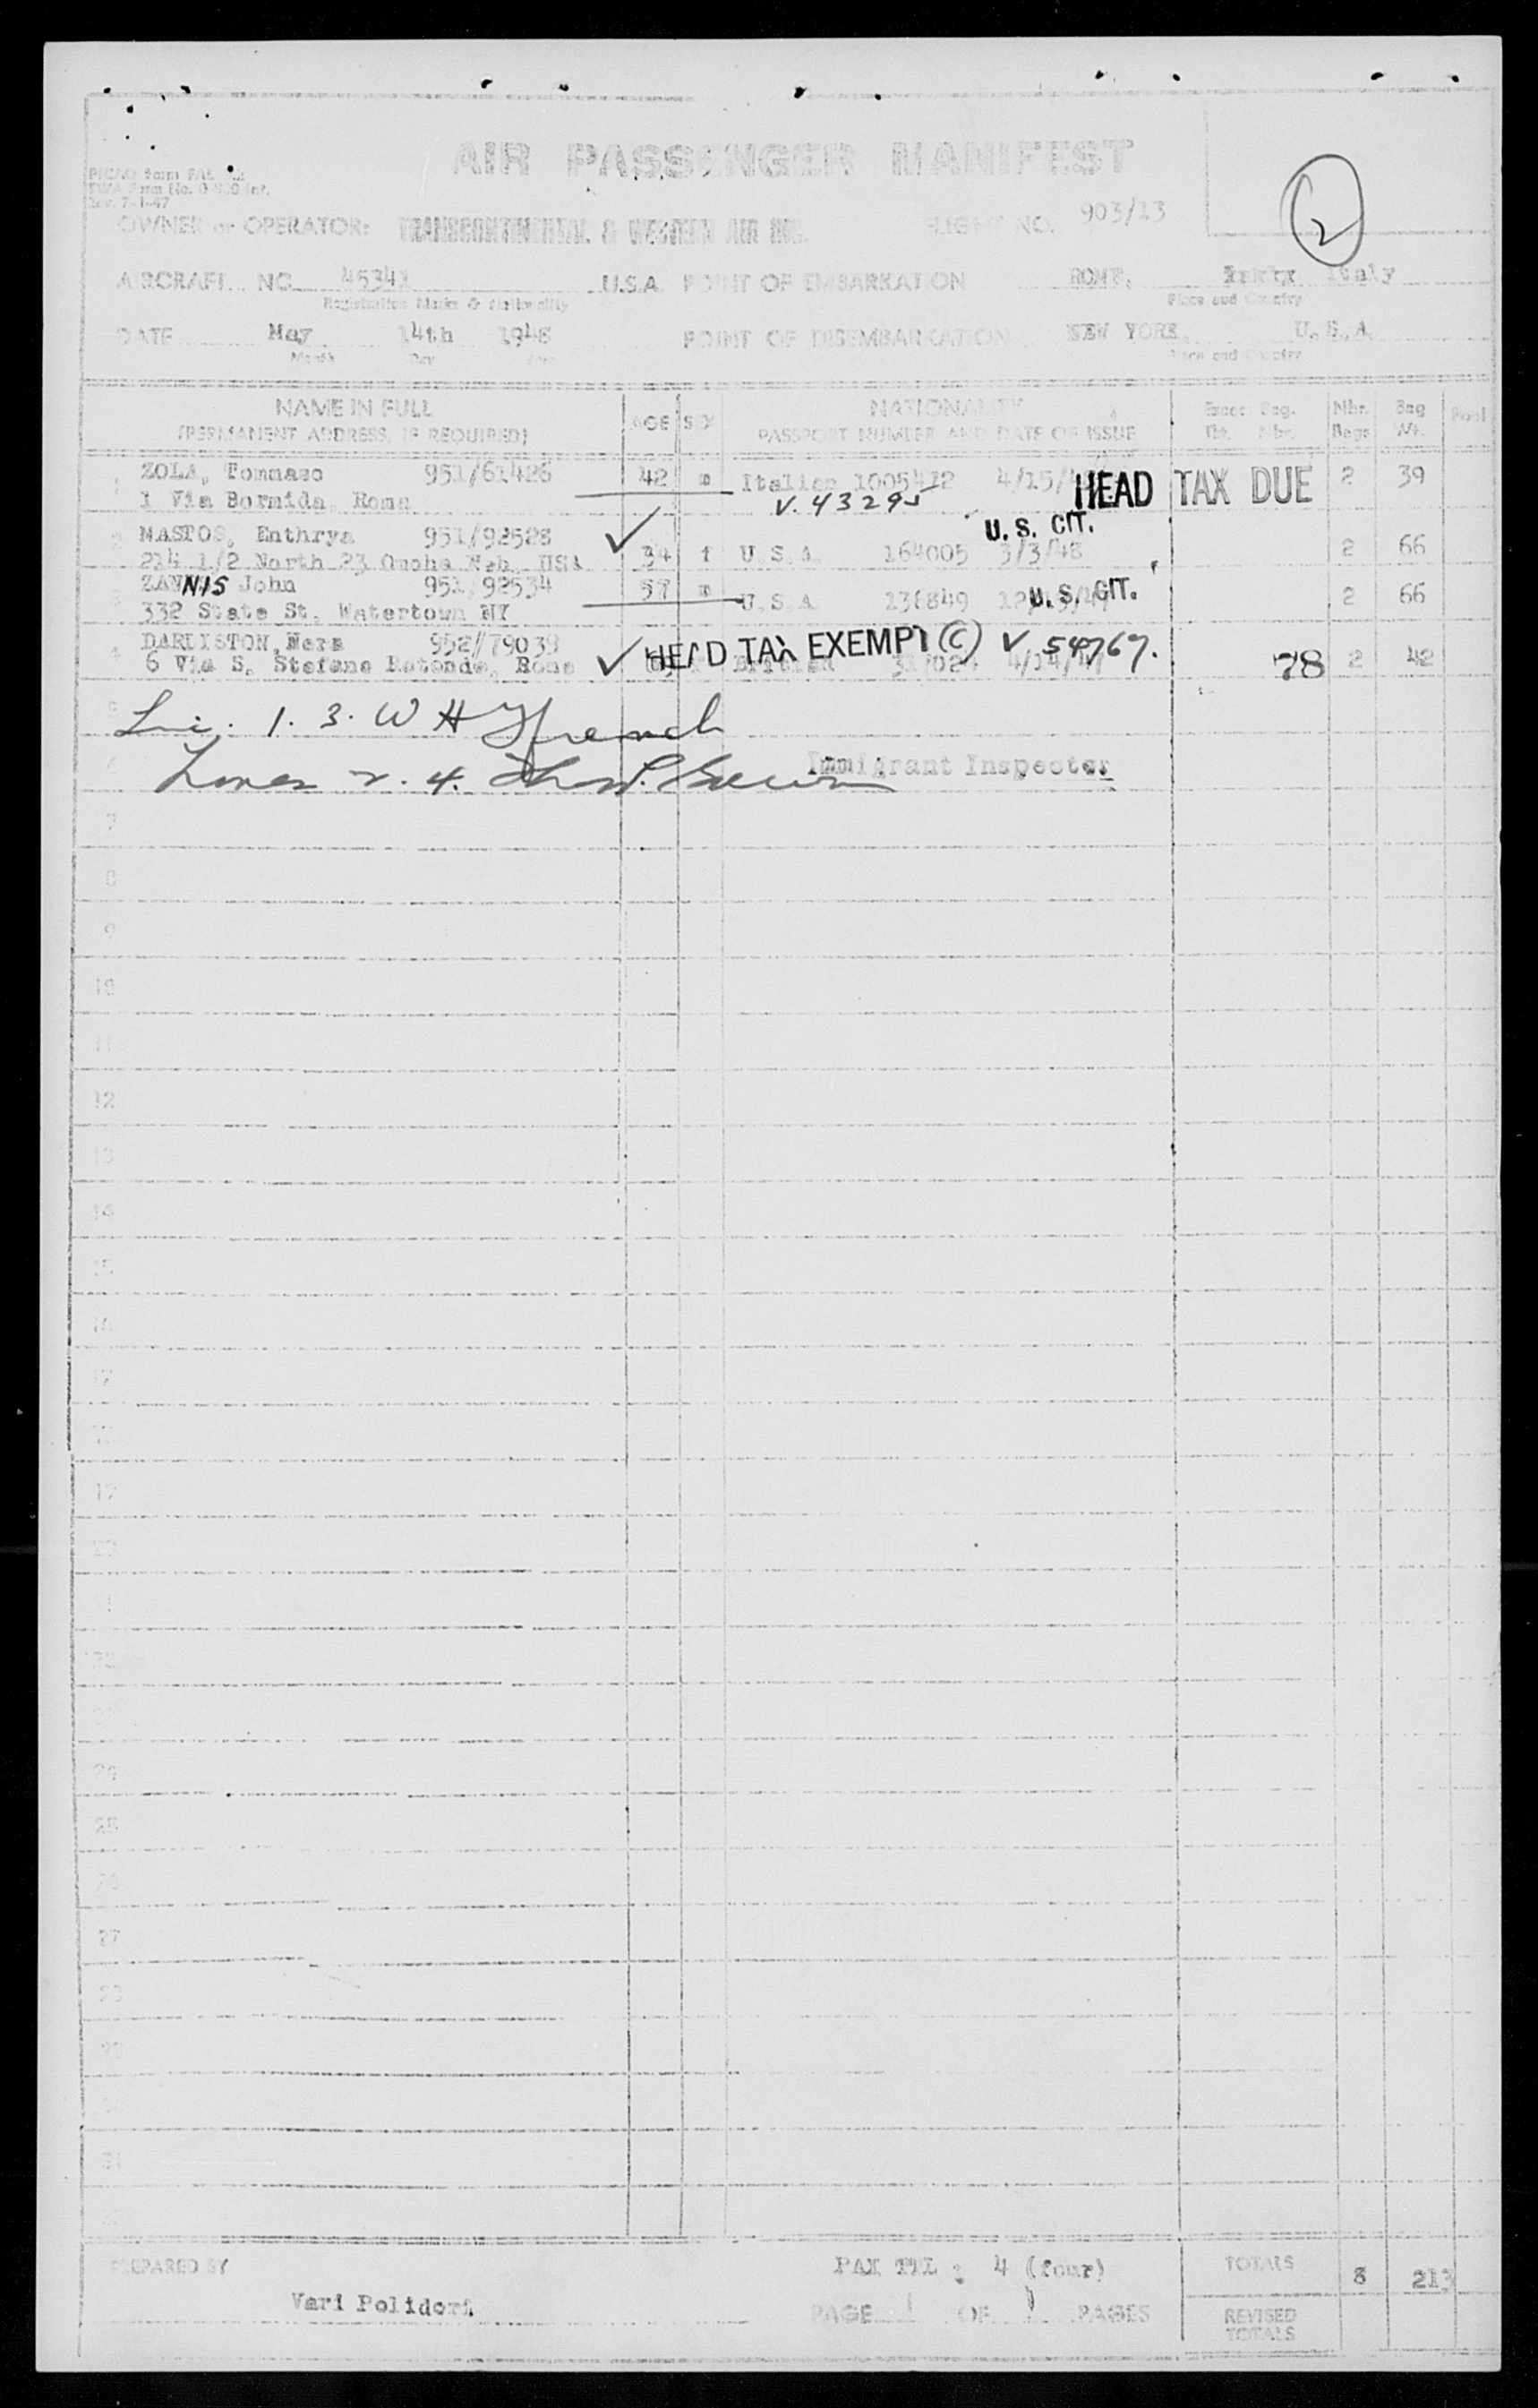 AIR PASSENGER MANIFEST
OWNER or OPERATOR: TRANSCONTINENTAL & WESTERN AIR INC. FLIGHT NO. 903/13
2
AIRCRAFT NO. 45341 U.S.A. POINT OF EMBARKATION ROME, Italy
Registration Marks & Nationality Place and Country
DATE May 14th 1948 POINT OF DISEMBARKATION NEW YORK, U.S.A.
Month Day Year Place and Country
NAME IN FULL AGE SEX NATIONALITY Excess Bag. Nbr. Bag
(PERMANENT ADDRESS, IF REQUIRED) PASSPORT NUMBER AND DATE OF ISSUE Tkt. Nbr. Bags Wt.
1 ZOLA, Tommaso 951/61426 42 m Italian 1005412 4/15/ HEAD TAX DUE 2 39
1 Via Bormida, Rome V. 43295
U. S. CIT.
2 MASTOS, Enthrya 951/92528 34 f U.S.A. 164005 3/3/48 2 66
214 1/2 North 23 Omaha Neb. USA
3 ZANNIS John 951/92534 57 m U.S.A. 136849 U. S. CIT. 2 66
332 State St. Watertown NY
4 DARLISTON, 952//79038 HEAD TAX EXEMPT (C) V 54767.
6 Via S. Stefano Rotondo, Rome British 4/14/47 78 2 42
1. 3. W H French
2. 4.
Immigrant Inspector
7
8
9
10
11
12
13
14
15
16
17
19
20
24
25
27
31
PREPARED BY PAX TTL : 4 (four) TOTALS 8 213
Vari Polidori
PAGE 1 OF 1 PAGES REVISED
TOTALS